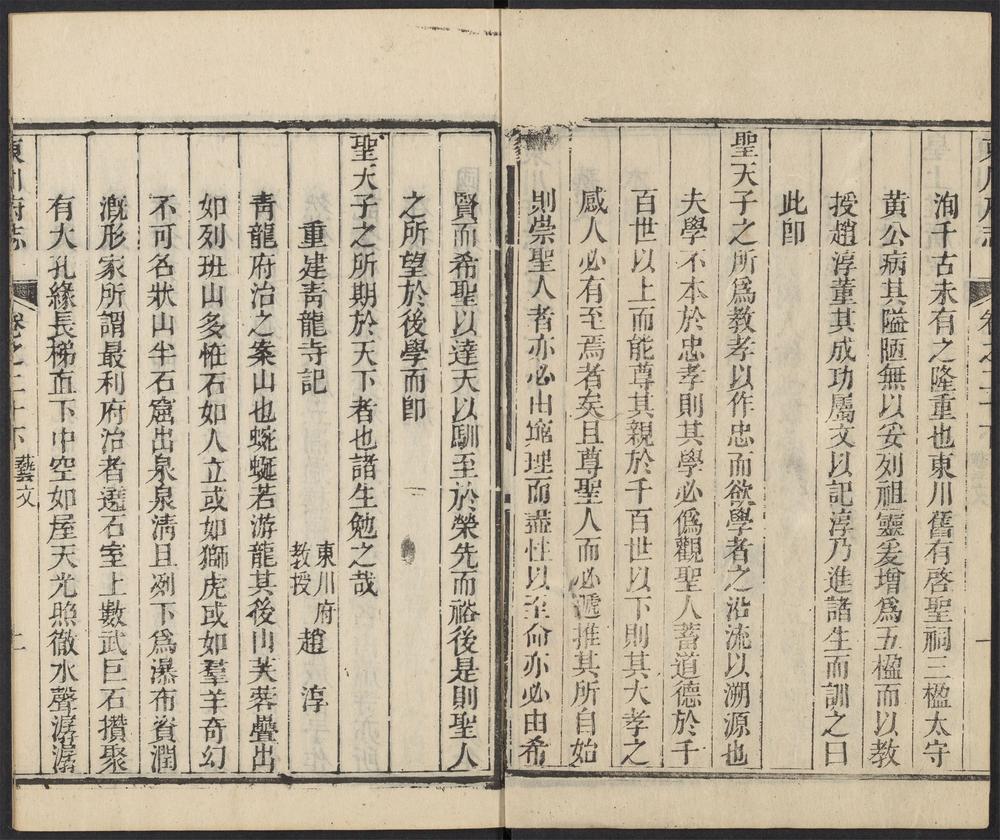 洵千古未有之隆重也東川舊有啓聖祠三楹太守
黃公病其隘陋無以妥列祖靈爰增爲五楹而以教
授趙淳董其成功屬文以記淳乃進諸生而訓之曰
此卽
聖天子之所爲教孝以作忠而欲學者之沿流以溯源也
夫學不本於忠孝則其學必僞觀聖人蓄道德於千
百世以上而能尊其親於千百世以下則其大孝之
感人必有至焉者矣且尊聖人而必遞推其所自始
則崇聖人者亦必由窮理而盡性以至命亦必由希
賢而希聖以達天以馴至於榮先而裕後是則聖人
之所望於後學而卽
聖天子之所期於天下者也諸生勉之哉
重建青龍寺記 東川府教授 趙淳
青龍府治之案山也蜿蜒若游龍其後山芙蓉疊出
如列班山多怪石如人立或如獅虎或如羣羊奇幻
不可名狀山半石窟出泉泉清且冽下爲瀑布資潤
漑形家所謂最利府治者遶石室上數武巨石攢聚
有大孔緣長梯直下中空如屋天光照徹水聲潺潺
東川府志 卷之二十下 藝文